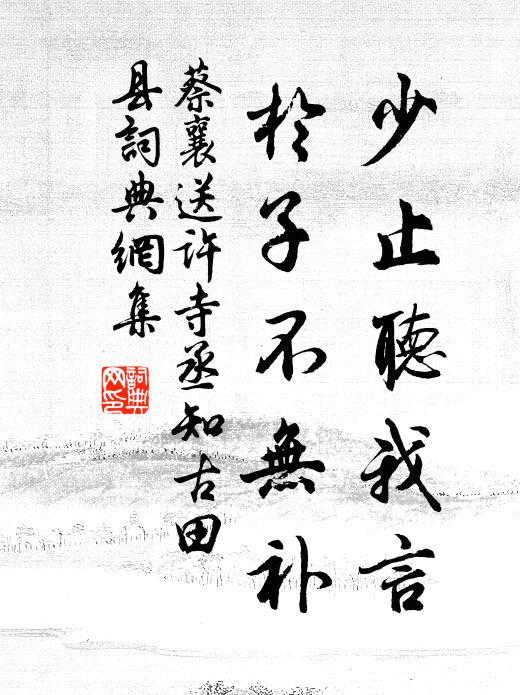 少止聽我言
於子不無补
蔡襄送許寺丞知古田
县詞典網集
詞典
网印